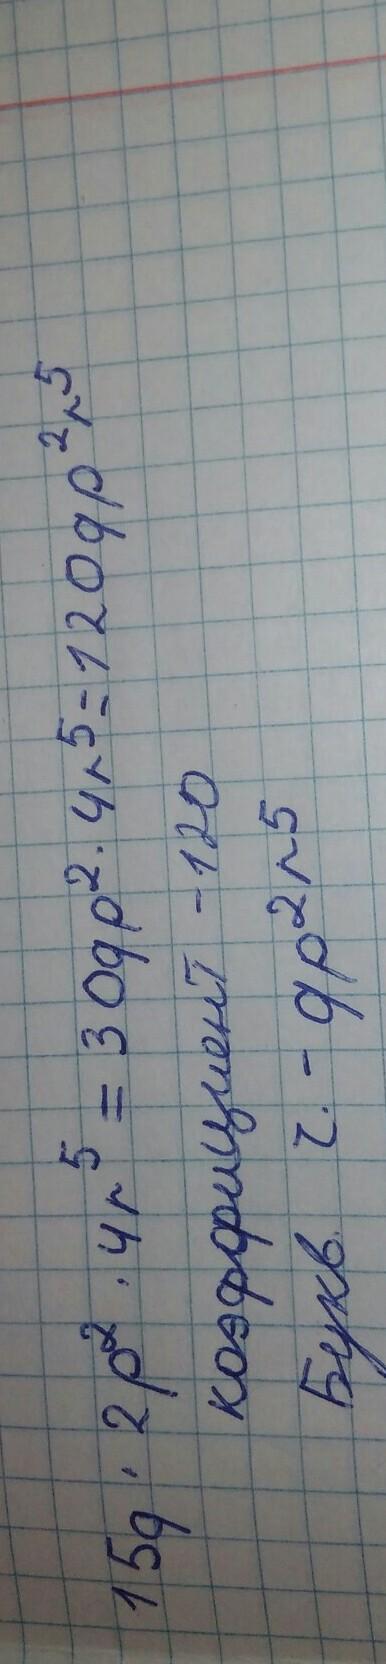 15q · 2p² · 4r⁵ = 30qp² · 4r⁵ = 120qp²r⁵
коэффициент - 120
Букв. ч. - qp²r⁵